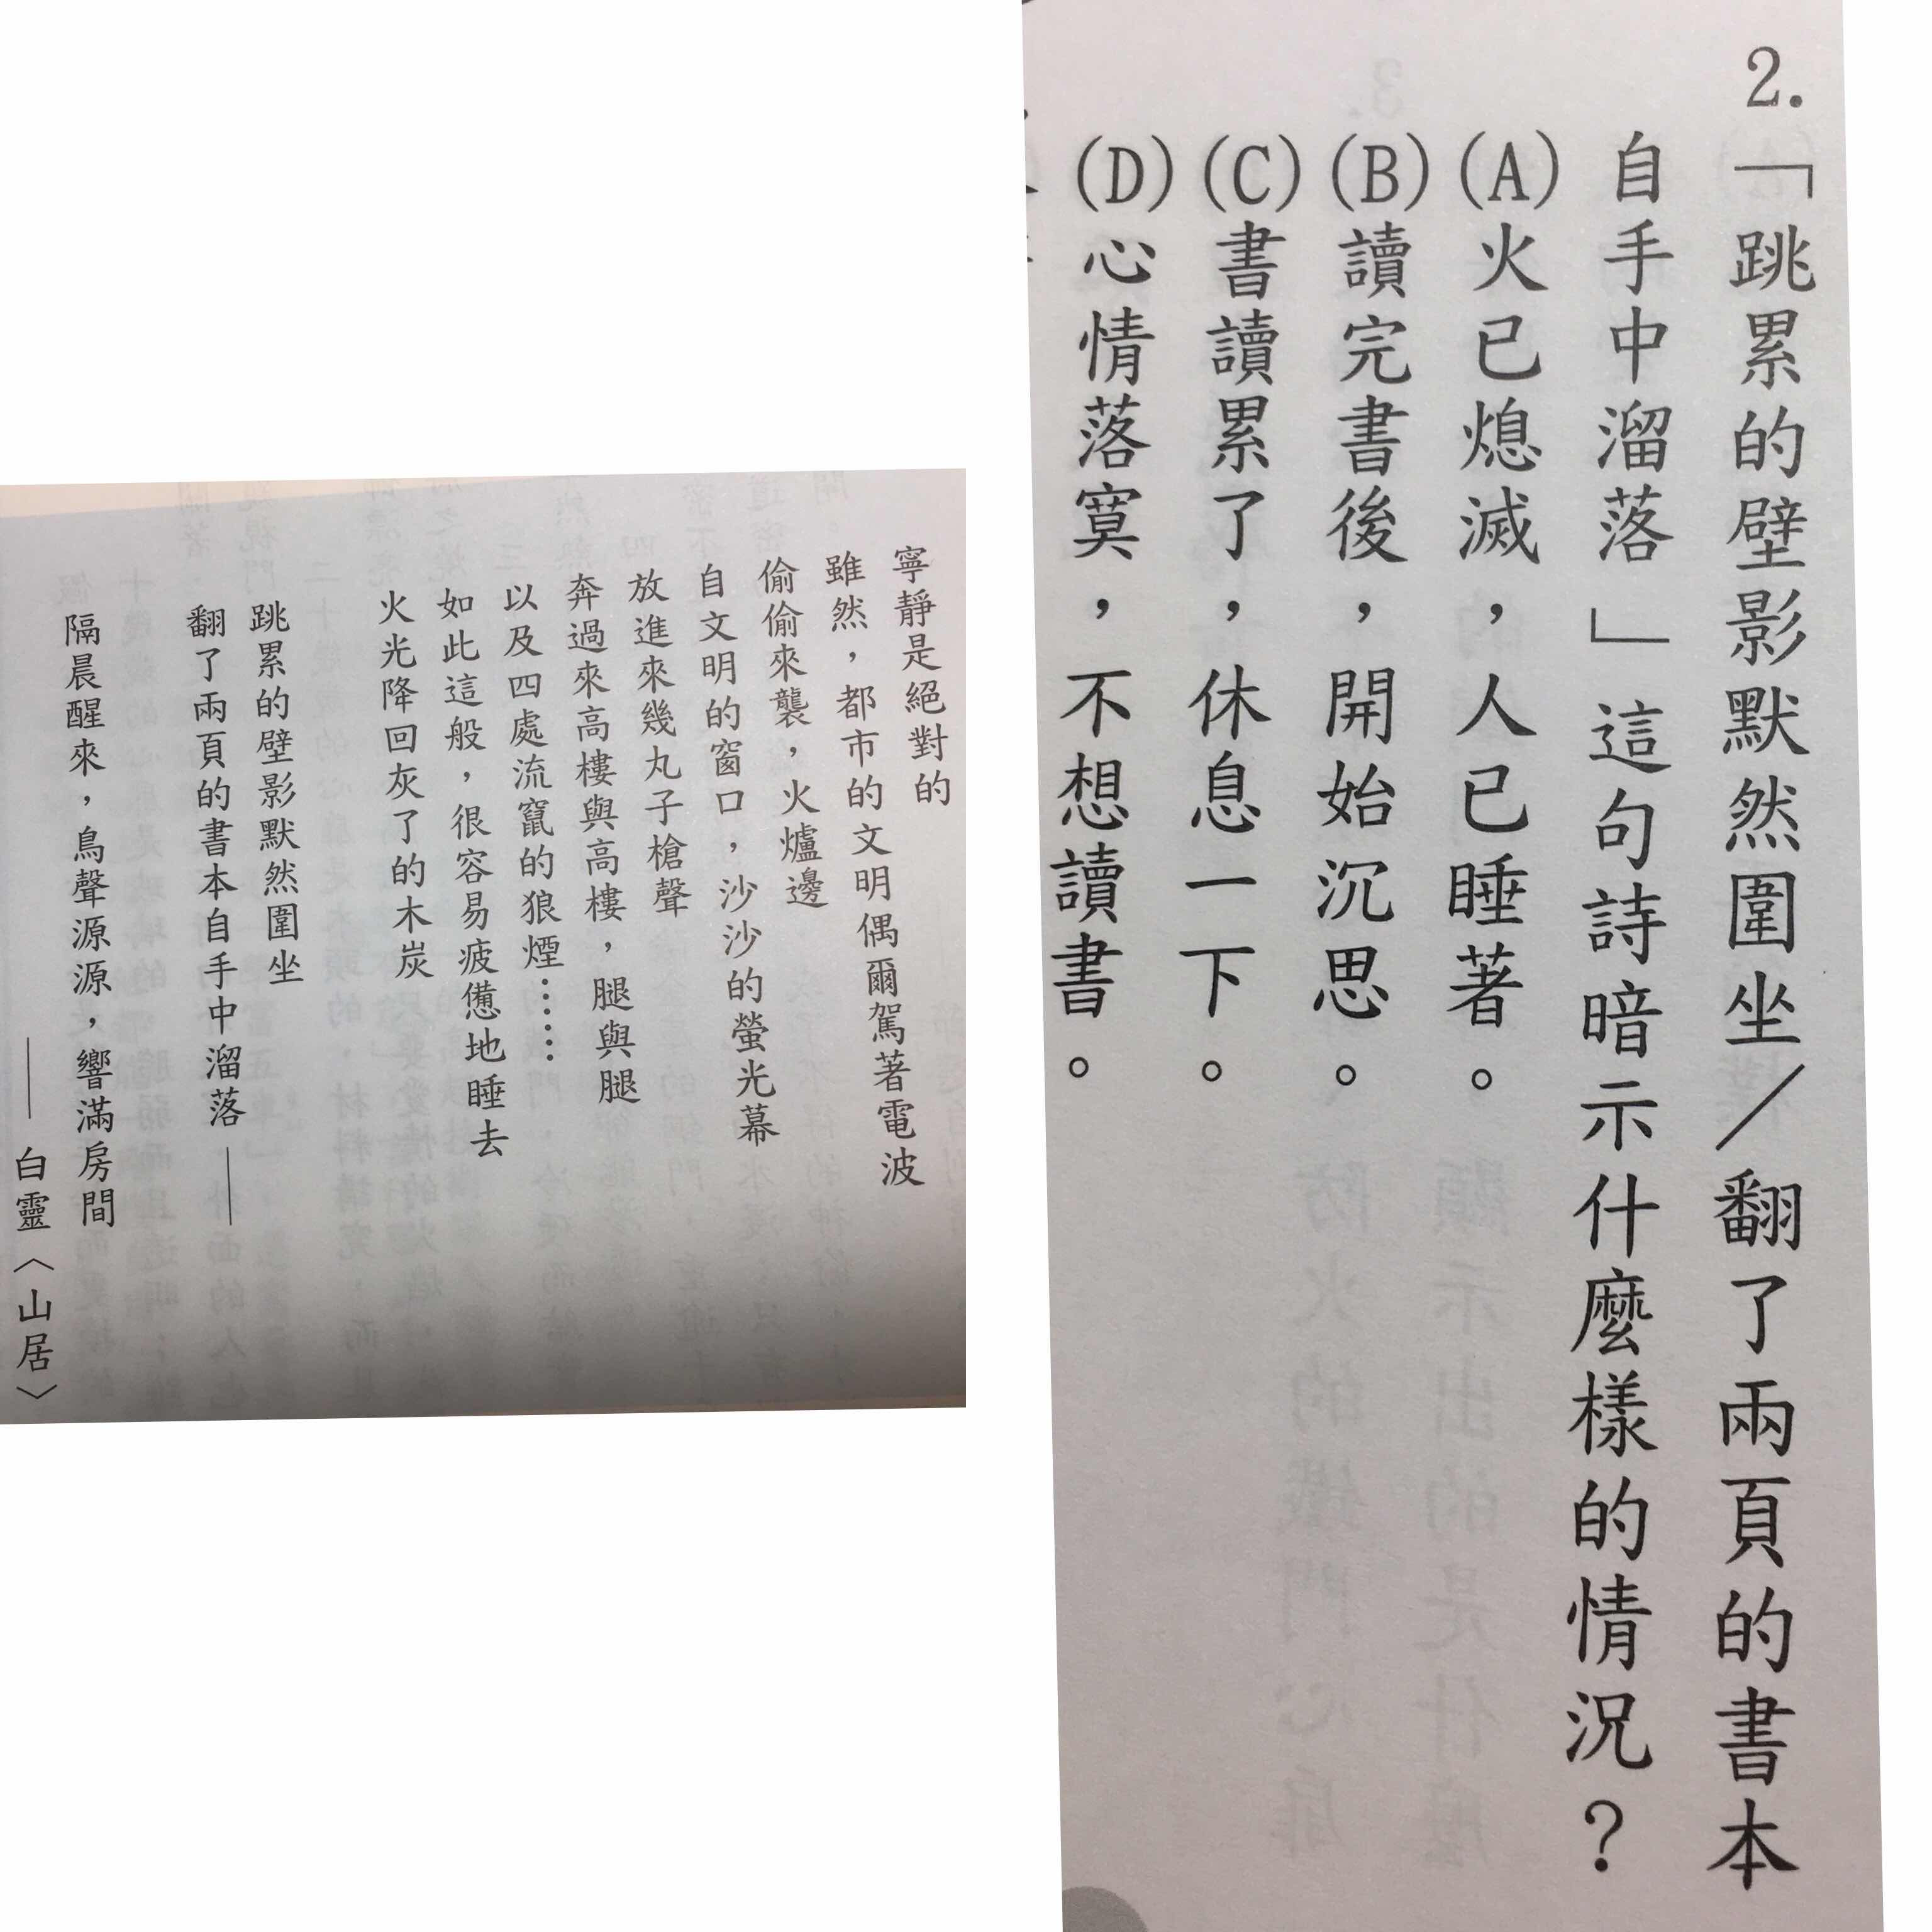 寧靜是絕對的
雖然，都市的文明偶爾駕著電波
偷偷來襲，火爐邊
自文明的窗口，沙沙的螢光幕
放進來幾丸子槍聲
奔過來高樓與高樓，腿與腿
以及四處流竄的狼煙……
如此這般，很容易疲憊地睡去
火光降回灰了的木炭
跳累的壁影默然圍坐
翻了兩頁的書本自手中溜落——
隔晨醒來，鳥聲源源，響滿房間
——白靈〈山居〉
2.「跳累的壁影默然圍坐／翻了兩頁的書本
自手中溜落」這句詩暗示什麼樣的情況？
(A)火已熄滅，人已睡著。
(B)讀完書後，開始沉思。
(C)書讀累了，休息一下。
(D)心情落寞，不想讀書。